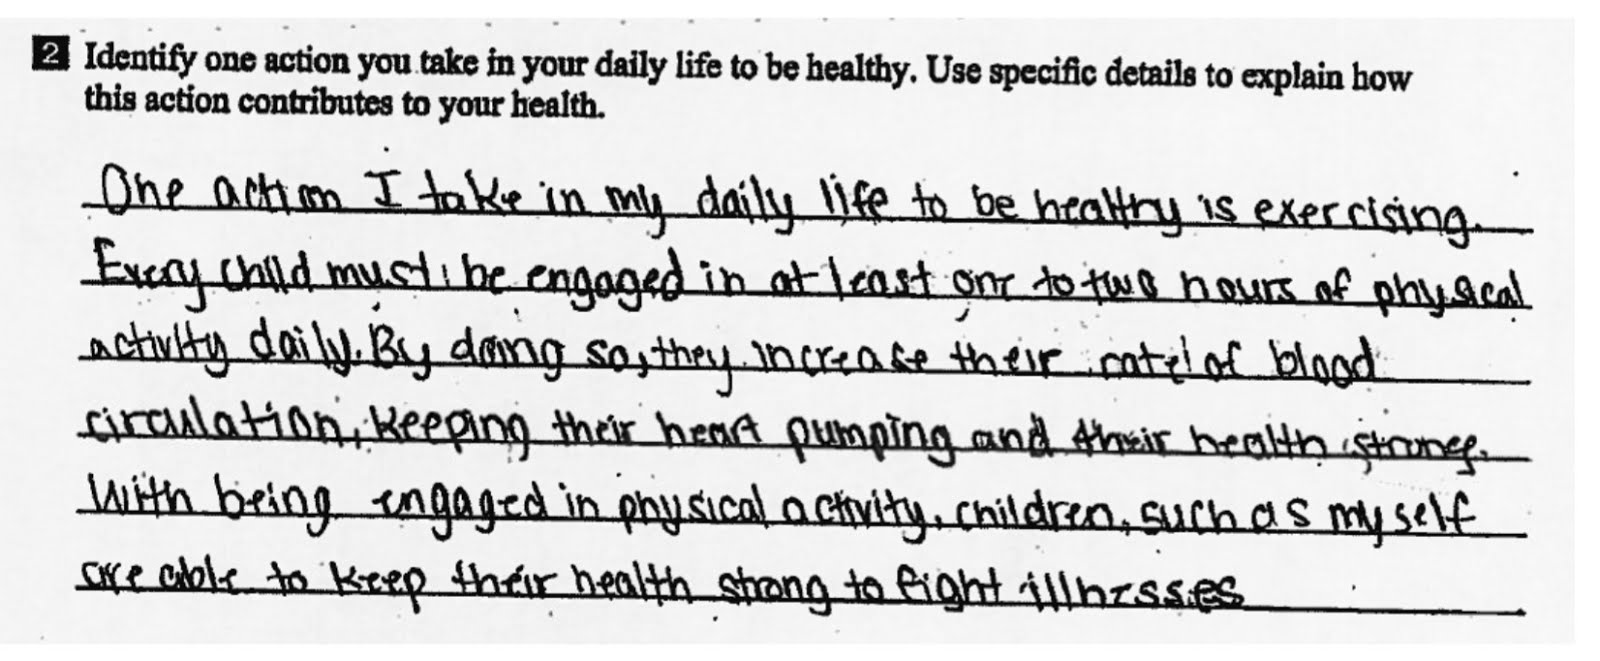 2 Identify one action you take in your daily life to be healthy. Use specific details to explain how
this action contributes to your health.
One action I take in my daily life to be healthy is exercising.
Every child must be engaged in at least one to two hours of physical
activity daily. By doing so, they increase their rate of blood
circulation, keeping their heart pumping and their health strong.
With being engaged in physical activity, children, such as myself
are able to keep their health strong to fight illnesses